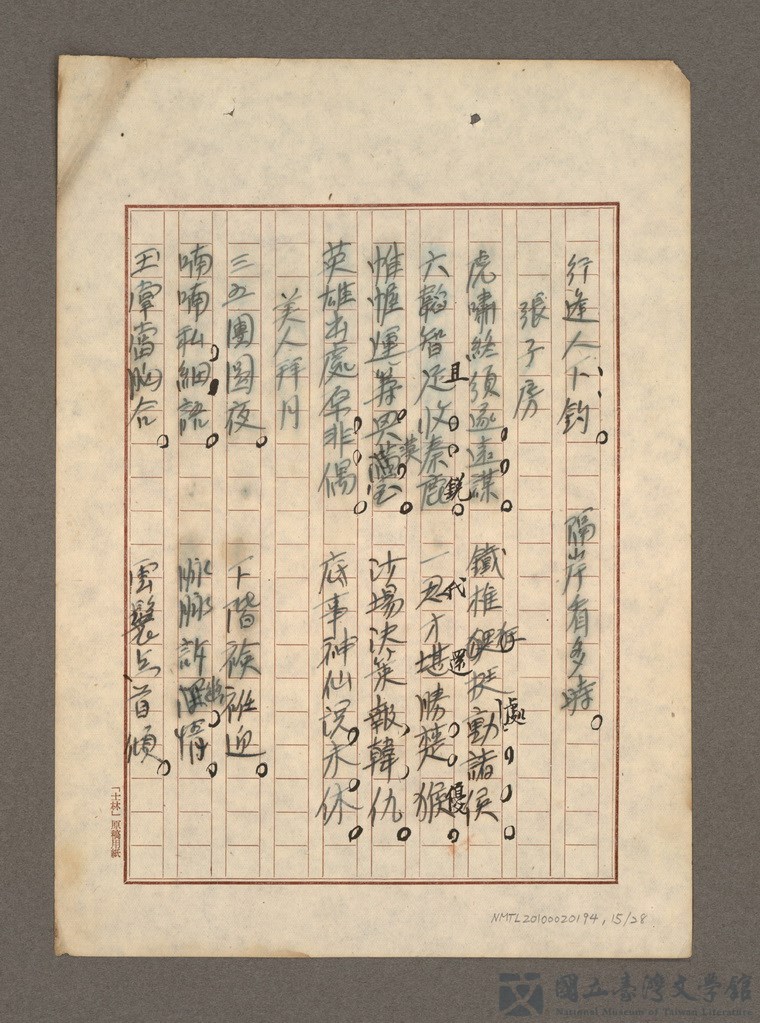 行逢人下釣。 隔岸看多時。
張子房
虎嘯終須逐遠謀。 鐵椎狙挺動諸侯
六韜智足收秦鹿。 一忍才堪勝楚猴
帷幄運籌興漢室。 沙場決策報韓仇。
英雄出處原非偶。 底事神仙說未休。
美人拜月
三五團圓夜。 下階襝衽迎。
喃喃私細語。 脉脉訴深情。
玉掌當胸合。 雲鬟点首傾。
「士林」原稿用紙
NMTL20100020194, 15/28
國立臺灣文學館
National Museum of Taiwan Literature